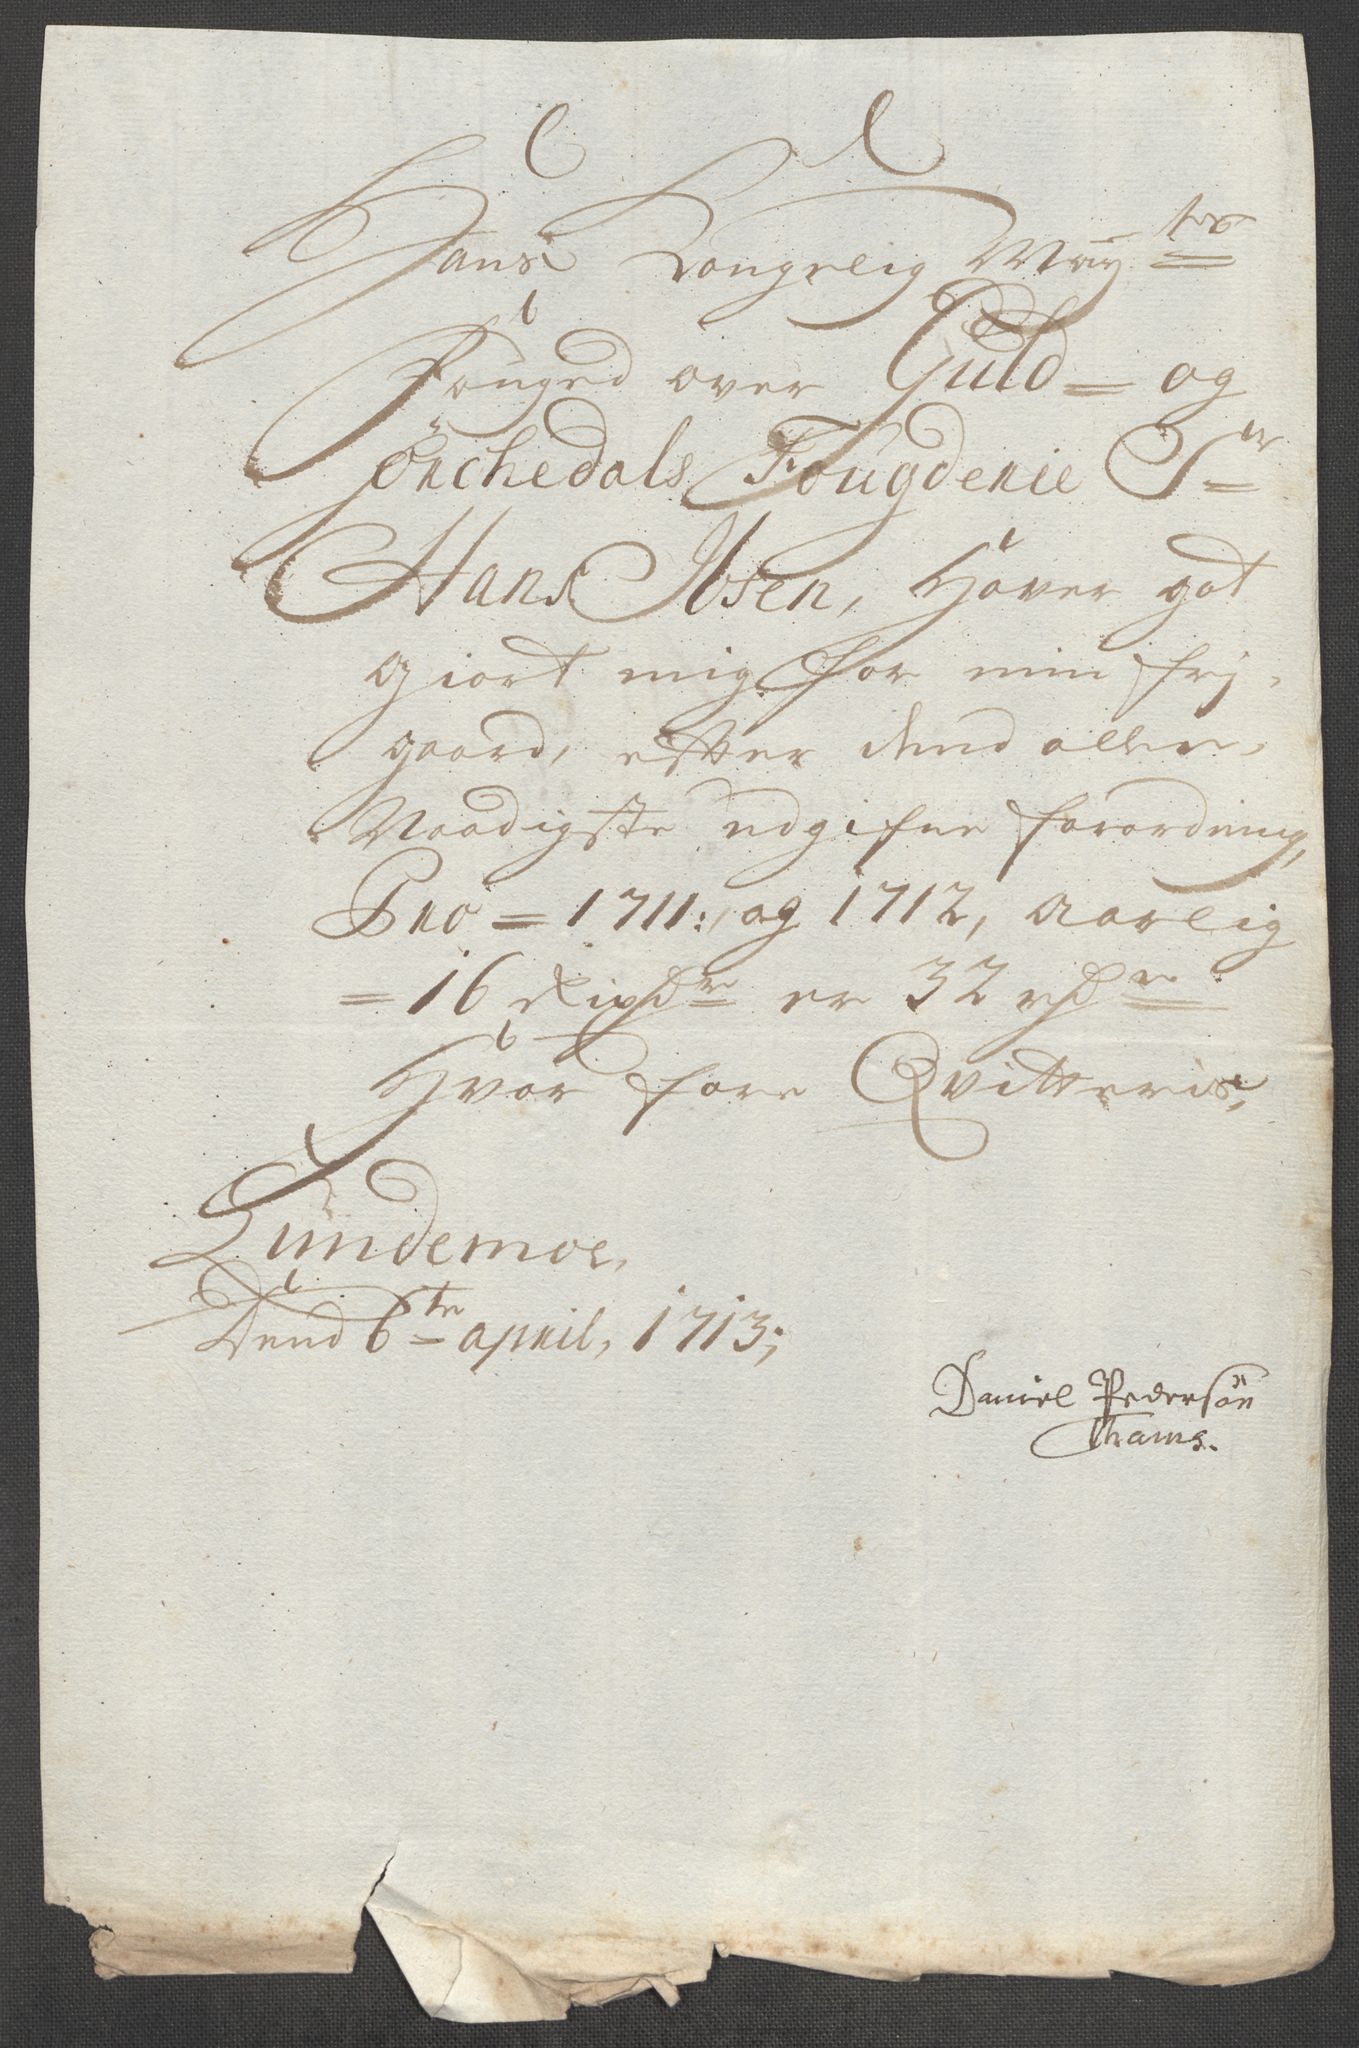 Hans Kongelig May:ts
Fouged over Guld= og
Örchedals Fougderie Sr
Hans Ibsen, Hafver got
giort mig for min frj,
gaard, efter dend aller,
Naadigste udgifne forordning,
Pro = 1711: og 1712, aarlig
= 16 Rixdr er 32 rdr
Hvor fore Qvitteris,
Lundemoe,
Dend 6te april, 1713;
Daniel Pedersön
Thams.